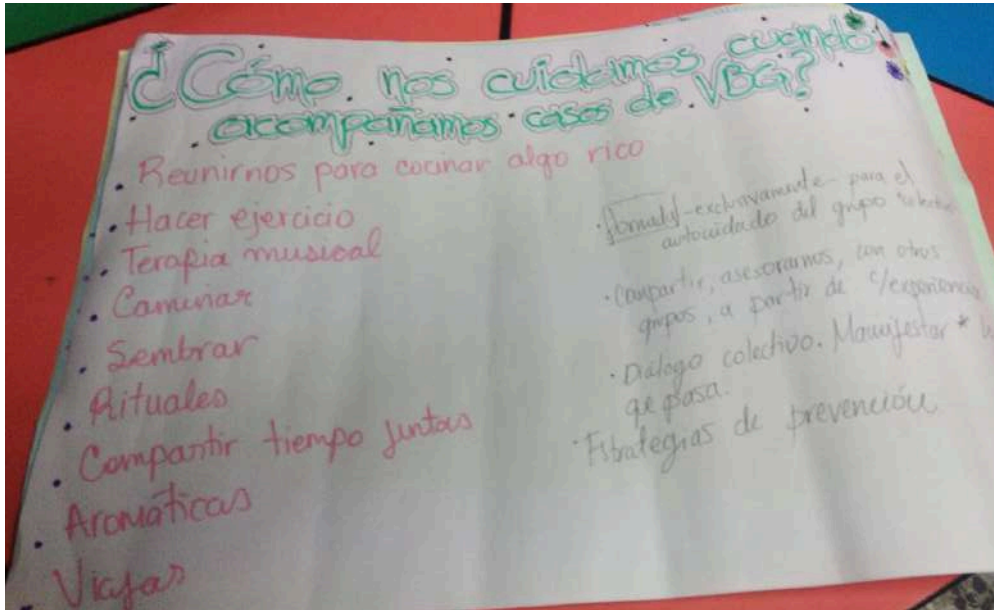 ¿Cómo nos cuidamos cuando
acompañamos casos de VBG?
• Reunirnos para cocinar algo rico
• Hacer ejercicio
• Terapia musical
• Caminar
• Sembrar
• Rituales
• Compartir tiempo juntas
• Aromáticas
• Viajar
• -exclusivamente- para el
autocuidado del grupo
• Compartir, asesorarnos, con otros
grupos, a partir de c/experiencia
• Diálogo colectivo. Manifestar *
qe pasa.
• Estrategias de prevención